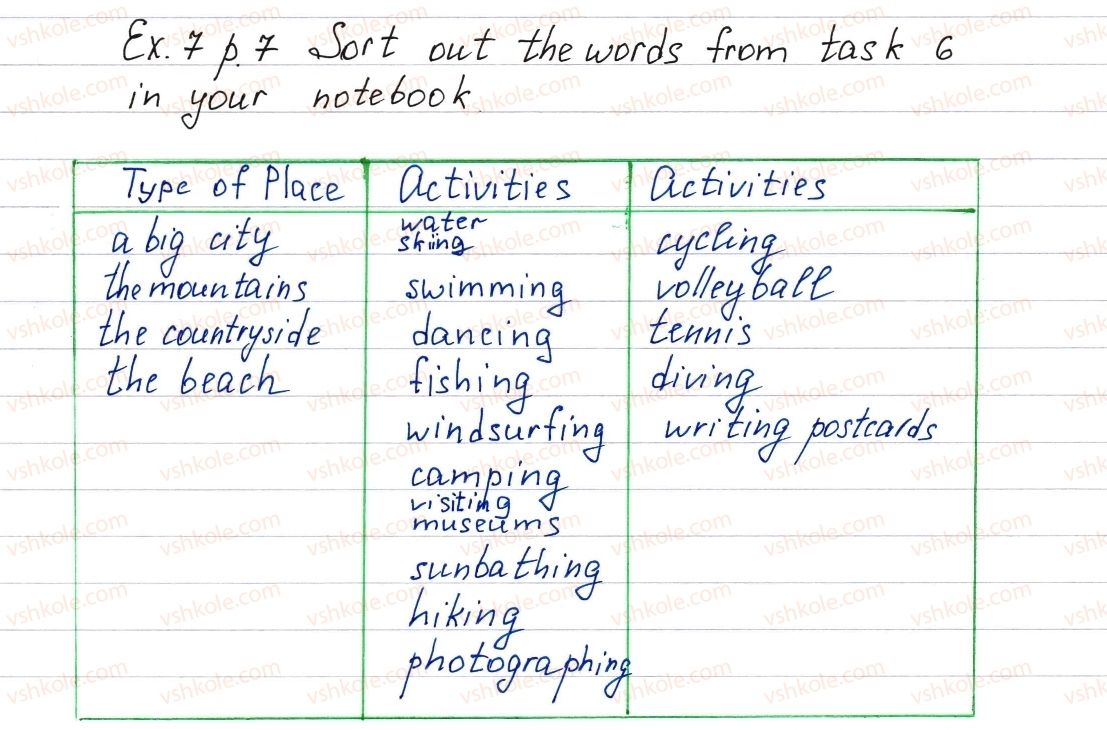 Ex. 7 p. 7 Sort out the words from task 6
in your notebook
Type of Place
a big city
the mountains
the countryside
the beach
Activities
water
skiing
swimming
dancing
fishing
windsurfing
camping
visiting
museums
sunbathing
hiking
photographing
Activities
cycling
volleyball
tennis
diving
writing postcards
vshkole.com